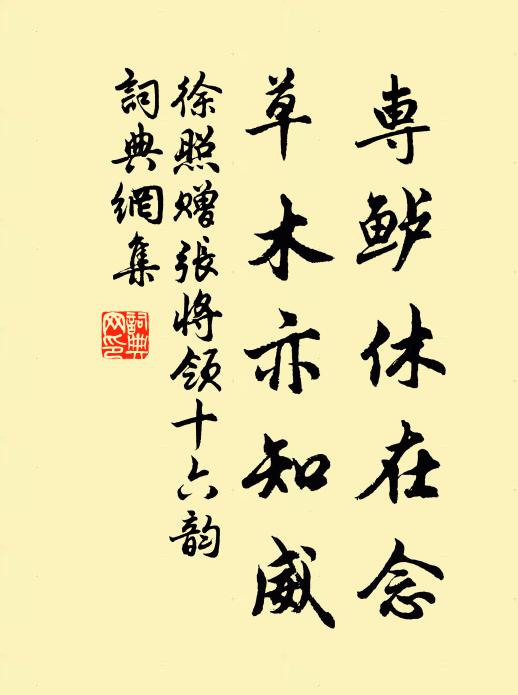 専鲈休在念
草木亦知威
徐照赠張将领十六韵
詞典網集
詞典
网印